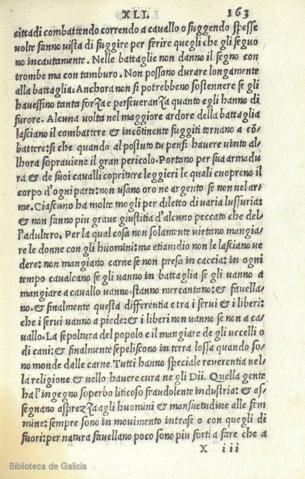 XLI. 163
città di combattendo correndo a cavallo o suggendo spesse
volte fanno vista di fuggire per ferire quegli che gli seguo
no incautamente. Nelle battaglie non danno il segno con
trombe ma con tamburo. Non possono durare longamente
alla battaglia. Anchora non si potrebbeno sostennere se gli
havessino tanta forza e perseveranza quanto egli hanno di
furore. Alcuna volta nel maggiore ardore della battaglia
lasciano il combattere & incõtinente fuggiti tornano a cõ
battere: si che quando al postuto tu pensi havere vinto al
lhora sopraviene il gran pericolo. Portano per sua armadu
ra & de suoi cavalli copriture leggieri le quali cuopreno il
corpo d'ogni parte: non usano oro ne argento se non nelar
me. Ciascuno ha molte mogli per diletto di varia lussuria:
& non fanno piu grave giustitia d'alcuno peccato che del
l'adultero. Per la qual cosa non solamente vietano mangia
re le donne con gli huomini: ma etiandio non le lasciano ve
dere: non mangiano carne se non presa in caccia: in ogni
tempo cavalcano se gli vanno in battaglia se gli vanno a
mangiare a cavallo vanno stanno mercantano: & favella/
no. & finalmente questa differentia e tra i servi & i liberi:
che i servi vanno a piede: & i liberi non vanno se non a ca/
vallo. La sepoltura del popolo e il mangiare de gli uccelli o
di cani: & finalmente sepelisono in terra l'ossa quando so/
no monde dalle carne. Tutti hanno speciale reverentia nel
la religione & nello havere cura ne gli Dii. Quella gente
ha l'ingegno superbo liticoso fraudolente industria: & as/
segnano asprezza a gli huomini & mansuetudine alle fem
mine: sempre sono in movimento intra se o con quegli di
fuori: per natura favellano poco sono piu forti a fare che a
X iii
Biblioteca de Galicia